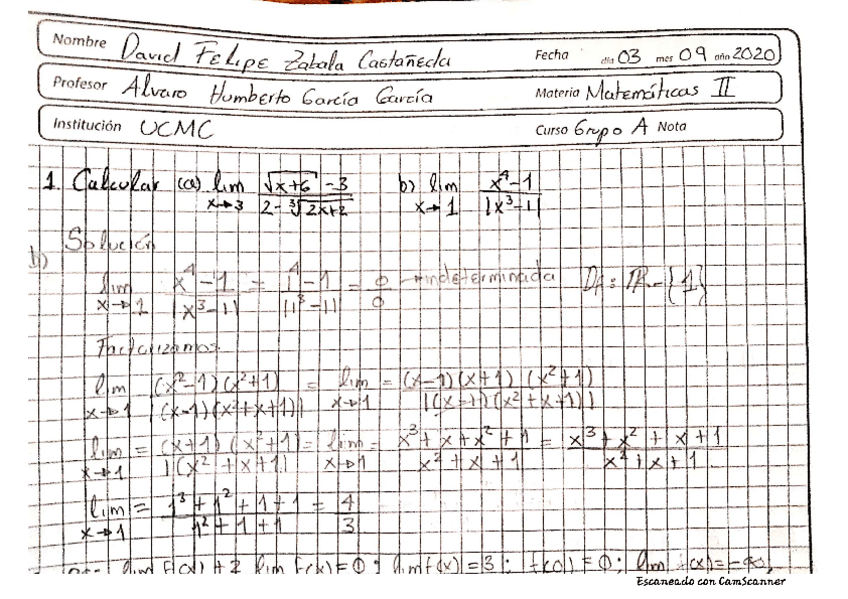 Nombre David Felipe Zabala Castañeda Fecha día 03 mes 09 año 2020
Profesor Alvaro Humberto García García Materia Matemáticas II
Institución UCMC Curso Grupo A Nota
1. Calcular (a) lim x→3 (√(x+6) - 3)/(2 - ∛(2x+2)) b) lim x→1 (x⁴-1)/|x³-1|
Solución
b)
lim x→1 (x⁴-1)/|x³-1| = (1⁴-1)/|1³-1| = 0/0 → indeterminada Df: ℝ-{1}
Factorizamos
lim x→1 (x²-1)(x²+1)/|(x-1)(x²+x+1)| = lim x→1 = (x-1)(x+1)(x²+1)/|(x-1)(x²+x+1)|
lim x→1 = (x+1)(x²+1)/|(x²+x+1)| = lim x→1 = (x³+x+x²+1)/(x²+x+1) = (x³+x²+x+1)/(x²+x+1)
lim x→1 = (1³+1²+1+1)/(1²+1+1) = 4/3
lim f(x)=0; lim f(x)=3; f(0)=0; lim f(x)=-∞,
Escaneado con CamScanner